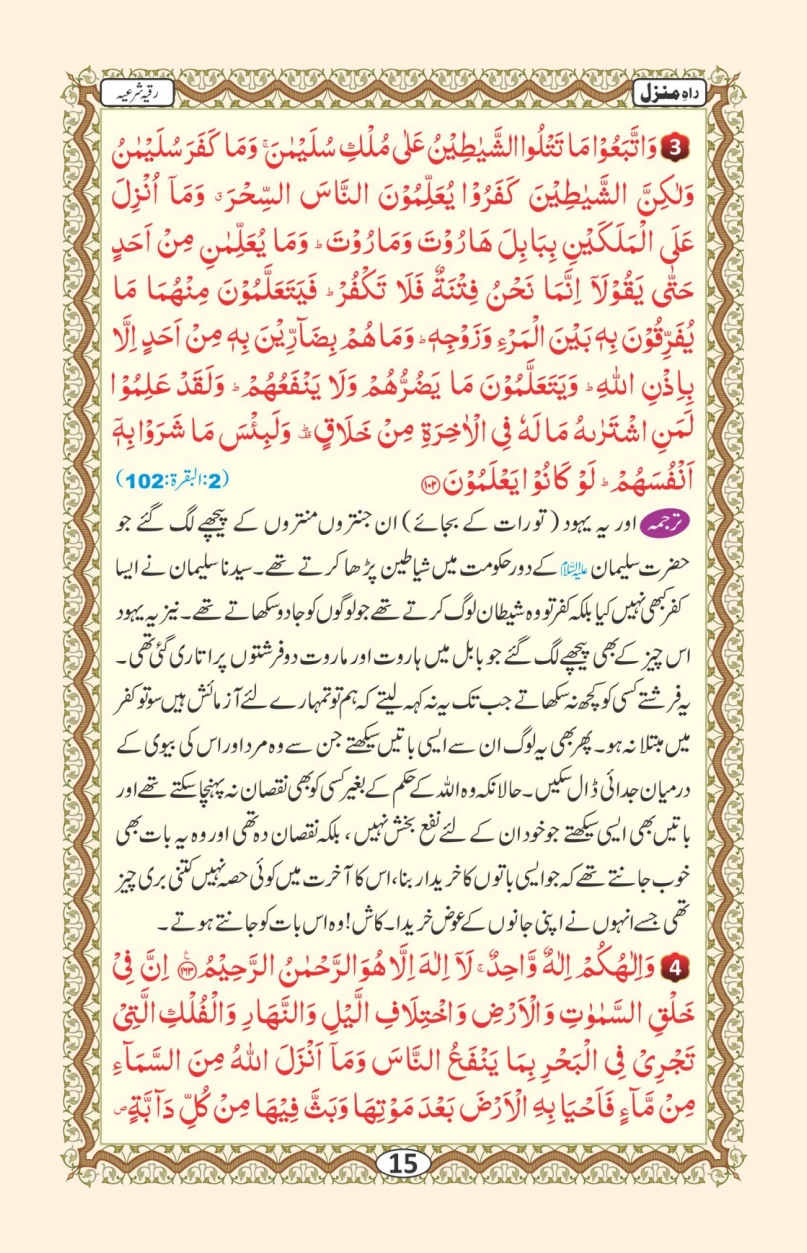 راہِ منزل
رقیہ شرعیہ
3 وَاتَّبَعُوْا مَا تَتْلُوا الشَّيٰطِيْنُ عَلٰى مُلْكِ سُلَيْمٰنَ ۚ وَمَا كَفَرَ سُلَيْمٰنُ
وَلٰكِنَّ الشَّيٰطِيْنَ كَفَرُوْا يُعَلِّمُوْنَ النَّاسَ السِّحْرَ ۤ وَمَآ اُنْزِلَ
عَلَى الْمَلَكَيْنِ بِبَابِلَ هَارُوْتَ وَمَارُوْتَ ؕ وَمَا يُعَلِّمٰنِ مِنْ اَحَدٍ
حَتّٰى يَقُوْلَآ اِنَّمَا نَحْنُ فِتْنَةٌ فَلَا تَكْفُرْ ؕ فَيَتَعَلَّمُوْنَ مِنْهُمَا مَا
يُفَرِّقُوْنَ بِهٖ بَيْنَ الْمَرْءِ وَزَوْجِهٖ ؕ وَمَا هُمْ بِضَآرِّيْنَ بِهٖ مِنْ اَحَدٍ اِلَّا
بِاِذْنِ اللهِ ؕ وَيَتَعَلَّمُوْنَ مَا يَضُرُّهُمْ وَلَا يَنْفَعُهُمْ ؕ وَلَقَدْ عَلِمُوْا
لَمَنِ اشْتَرٰىهُ مَا لَهٗ فِى الْاٰخِرَةِ مِنْ خَلَاقٍ ؕ وَلَبِئْسَ مَا شَرَوْا بِهٖٓ
اَنْفُسَهُمْ ؕ لَوْ كَانُوْا يَعْلَمُوْنَ ﴿۱۰۲﴾ (2:البقرۃ:102)
ترجمہ اور یہ یہود (تورات کے بجائے) ان جنتروں منتروں کے پیچھے لگ گئے جو
حضرت سلیمان علیہ السلام کے دور حکومت میں شیاطین پڑھا کرتے تھے۔ سیدنا سلیمان نے ایسا
کفر کبھی نہیں کیا بلکہ کفر تو وہ شیطان لوگ کرتے تھے جو لوگوں کو جادو سکھاتے تھے۔ نیز یہ یہود
اس چیز کے بھی پیچھے لگ گئے جو بابل میں ہاروت اور ماروت دو فرشتوں پر اتاری گئی تھی۔
یہ فرشتے کسی کو کچھ نہ سکھاتے جب تک یہ نہ کہہ لیتے کہ ہم تو تمہارے لئے آزمائش ہیں سو تو کفر
میں مبتلا نہ ہو۔ پھر بھی یہ لوگ ان سے ایسی باتیں سیکھتے جن سے وہ مرد اور اس کی بیوی کے
درمیان جدائی ڈال سکیں۔ حالانکہ وہ اللہ کے حکم کے بغیر کسی کو بھی نقصان نہ پہنچا سکتے تھے اور
باتیں بھی ایسی سیکھتے جو خود ان کے لئے نفع بخش نہیں، بلکہ نقصان دہ تھی اور وہ یہ بات بھی
خوب جانتے تھے کہ جو ایسی باتوں کا خریدار بنا، اس کا آخرت میں کوئی حصہ نہیں کتنی بری چیز
تھی جسے انہوں نے اپنی جانوں کے عوض خریدا۔ کاش! وہ اس بات کو جانتے ہوتے۔
4 وَاِلٰهُكُمْ اِلٰهٌ وَّاحِدٌ ۚ لَآ اِلٰهَ اِلَّا هُوَ الرَّحْمٰنُ الرَّحِيْمُ ﴿۱۶۳﴾ اِنَّ فِىْ
خَلْقِ السَّمٰوٰتِ وَالْاَرْضِ وَاخْتِلَافِ الَّيْلِ وَالنَّهَارِ وَالْفُلْكِ الَّتِىْ
تَجْرِىْ فِى الْبَحْرِ بِمَا يَنْفَعُ النَّاسَ وَمَآ اَنْزَلَ اللهُ مِنَ السَّمَآءِ
مِنْ مَّآءٍ فَاَحْيَا بِهِ الْاَرْضَ بَعْدَ مَوْتِهَا وَبَثَّ فِيْهَا مِنْ كُلِّ دَآبَّةٍ ص
15